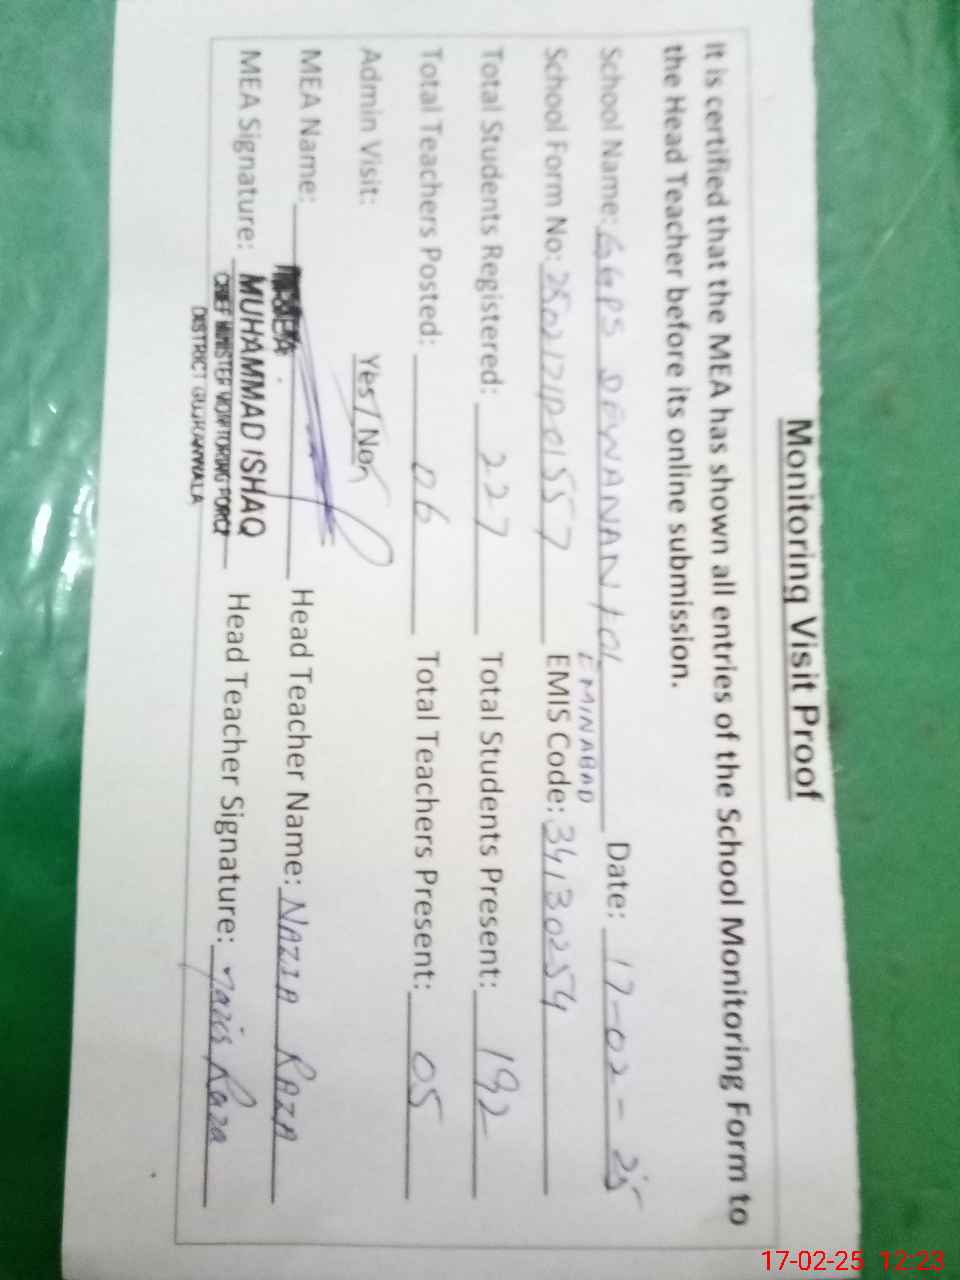 Monitoring Visit Proof
It is certified that the MEA has shown all entries of the School Monitoring Form to
the Head Teacher before its online submission.
School Name: GGPS DEWANAN Date: 17-02-25
EMINABAD
School Form No: EMIS Code: 34130254
Total Students Registered: 227 Total Students Present: 192
Total Teachers Posted: 06 Total Teachers Present: 05
Admin Visit: Yes / No
MEA Name: Head Teacher Name: NAZIA RAZA
MEA Signature: MUHAMMAD ISHAQ Head Teacher Signature: Nazia Raza
CHIEF MINISTER MONITORING FORCE
DISTRICT GUJRANWALA
17-02-25 12:23